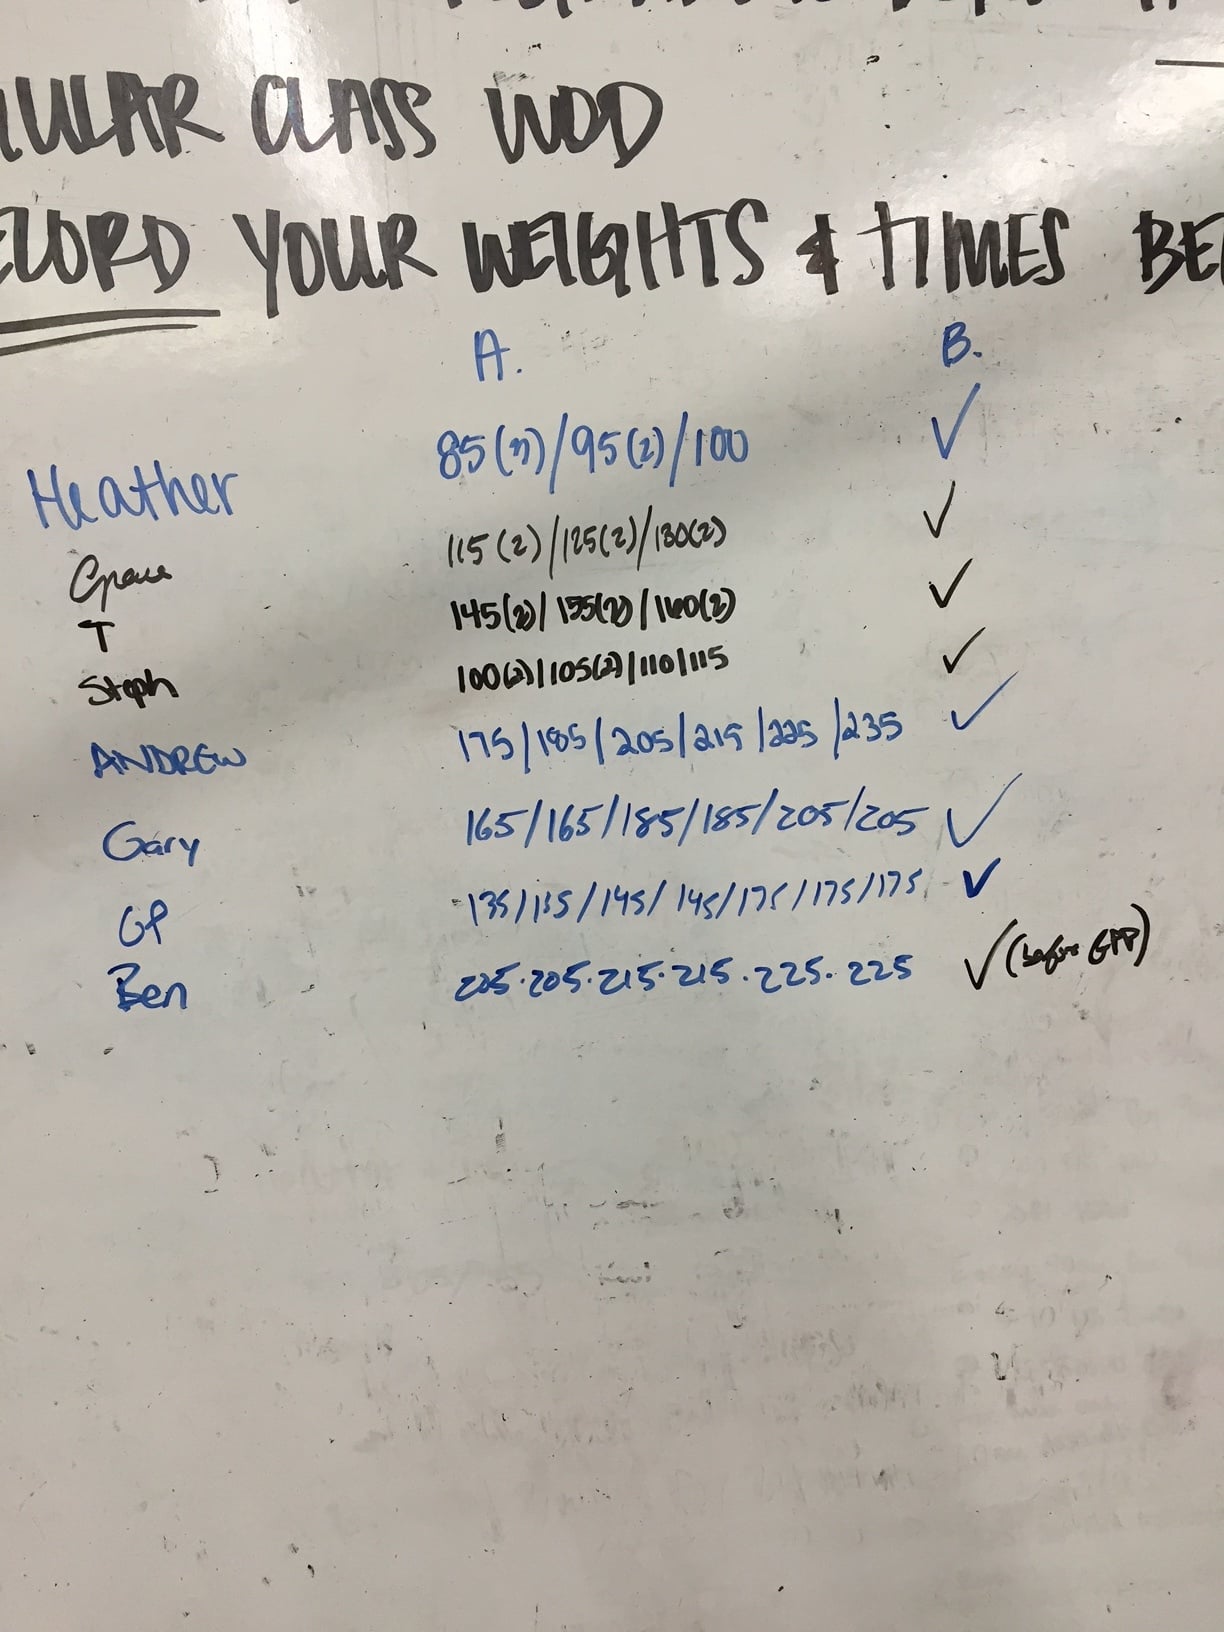 ULAR CLASS WOD
ECORD YOUR WEIGHTS & TIMES BE
A. B.
Heather 85(3)/95(2)/100 ✓
Grace 115(2)/125(2)/130(2) ✓
T 145(2)/155(2)/160(2) ✓
Steph 100(2)/105(2)/110/115 ✓
ANDREW 175/185/205/215/225/235 ✓
Gary 165/165/185/185/205/205 ✓
GP 135/135/145/145/175/175/175 ✓
Ben 205·205·215·215·225·225 ✓(before GPP)